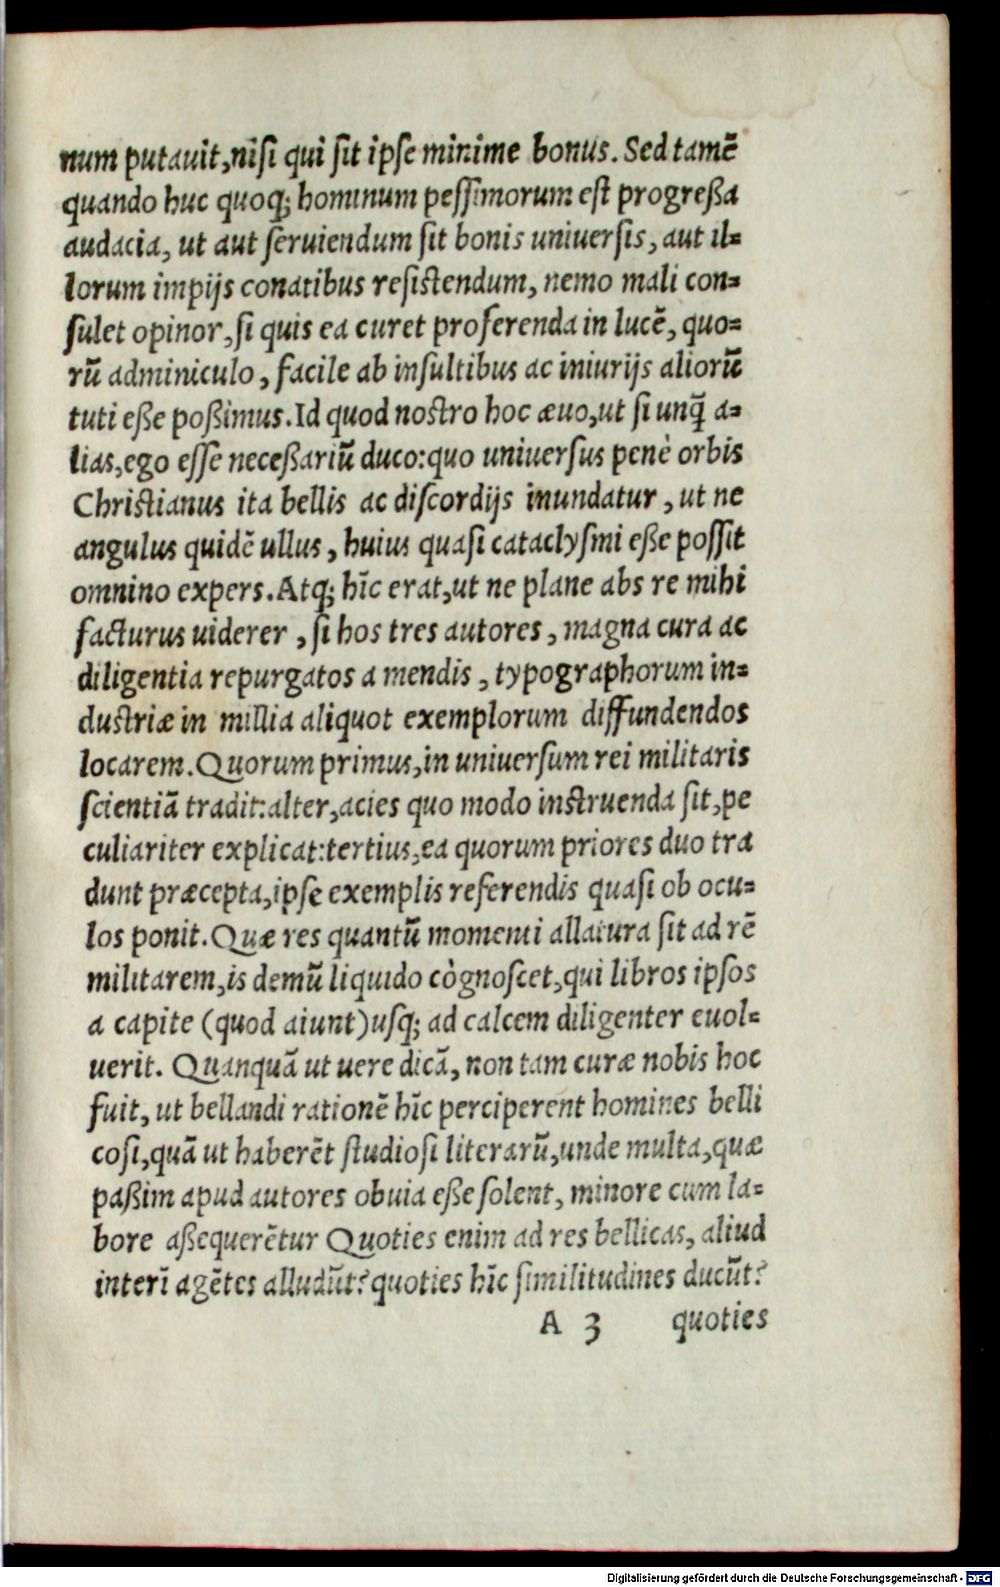 num putauit,nisi qui sit ipse minime bonus. Sed tamē
quando huc quoq; hominum pessimorum est progreßa
audacia, ut aut seruiendum sit bonis uniuersis, aut il=
lorum impijs conatibus resistendum, nemo mali con=
sulet opinor, si quis ea curet proferenda in lucē, quo=
rū adminiculo, facile ab insultibus ac iniurijs aliorū
tuti eße poßimus. Id quod nostro hoc æuo,ut si unq̄ a=
lias,ego esse neceßariū duco: quo uniuersus penè orbis
Christianus ita bellis ac discordijs inundatur, ut ne
angulus quidē ullus, huius quasi cataclysmi eße possit
omnino expers. Atq; hīc erat,ut ne plane abs re mihi
facturus uiderer, si hos tres autores, magna cura ac
diligentia repurgatos a mendis, typographorum in=
dustriæ in millia aliquot exemplorum diffundendos
locarem. Quorum primus,in uniuersum rei militaris
scientiā tradit: alter,acies quo modo instruenda sit,pe
culiariter explicat: tertius,ea quorum priores duo tra
dunt præcepta,ipse exemplis referendis quasi ob ocu=
los ponit. Quæ res quantū momenti allatura sit ad rē
militarem,is demū liquido cògnoscet,qui libros ipsos
a capite (quod aiunt)usq; ad calcem diligenter euol=
uerit. Quanquā ut uere dicā, non tam curæ nobis hoc
fuit, ut bellandi rationē hīc perciperent homines belli
cosi,quā ut haberēt studiosi literarū,unde multa,quæ
paßim apud autores obuia eße solent, minore cum la=
bore aßequerētur Quoties enim ad res bellicas, aliud
interī agētes alludūt? quoties hīc similitudines ducūt?
A 3 quoties
Digitalisierung gefördert durch die Deutsche Forschungsgemeinschaft - DFG